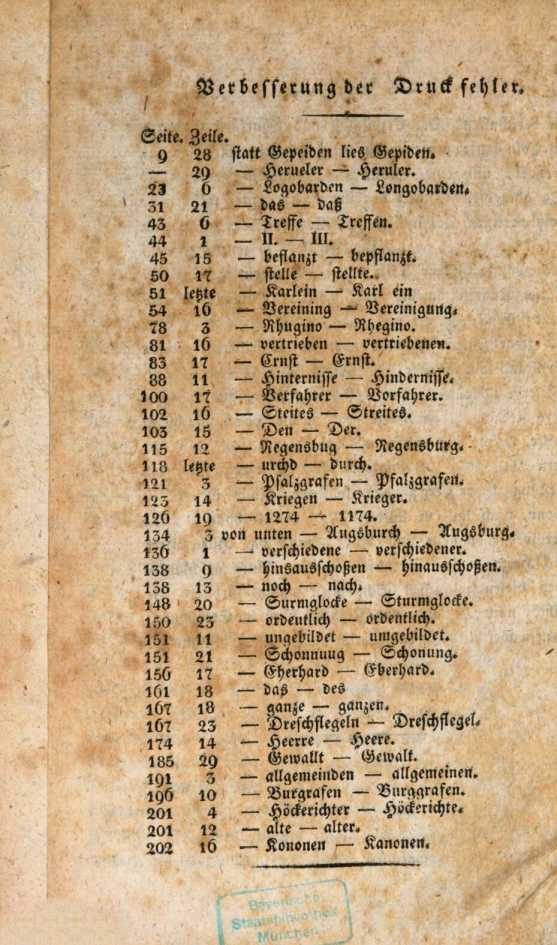 Verbesserung der Druckfehler.
Seite. Zeile.
9 28 statt Gepeiden lies Gepiden.
— 29 — Herueler — Heruler.
23 6 — Logobarden — Longobarden.
31 21 — das — daß
43 6 — Treffe — Treffen.
44 1 — II. — III.
45 15 — beflanzt — bepflanzt.
50 17 — stelle — stellte.
51 letzte — Karlein — Karl ein
54 16 — Vereining — Vereinigung.
78 3 — Rhugino — Rhegino.
81 16 — vertrieben — vertriebenen.
83 17 — Crnst — Ernst.
88 11 — Hinternisse — Hindernisse.
100 17 — Verfahrer — Vorfahrer.
102 16 — Steites — Streites.
103 15 — Den — Der.
115 12 — Regensbug — Regensburg.
118 letzte — urchd — durch.
121 3 — Psalzgrafen — Pfalzgrafen.
123 14 — Kriegen — Krieger.
126 19 — 1274 — 1174.
134 3 von unten — Augsburch — Augsburg.
136 1 — verschiedene — verschiedener.
138 9 — hinsausschoßen — hinausschoßen.
138 13 — noch — nach.
148 20 — Surmglocke — Sturmglocke.
150 23 — ordeutlich — ordentlich.
151 11 — ungebildet — umgebildet.
151 21 — Schonnuug — Schonung.
156 17 — Eherhard — Eberhard.
161 18 — das — des
167 18 — ganze — ganzen.
167 23 — Dreschflegeln — Dreschflegel.
174 14 — Heerre — Heere.
185 29 — Gewallt — Gewalt.
191 3 — allgemeinden — allgemeinen.
196 10 — Burgrafen — Burggrafen.
201 4 — Höckerichter — Höckerichte.
201 12 — alte — alter.
202 16 — Kononen — Kanonen.
Bayerische
Staatsbibliothek
München